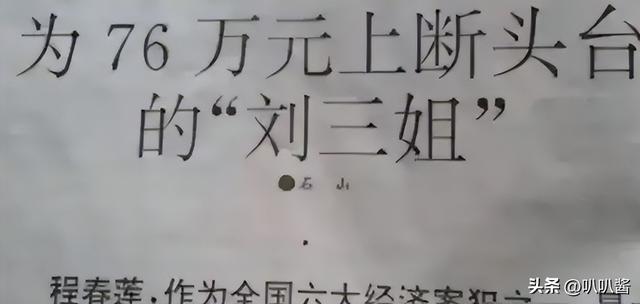 为76万元上断头台
的“刘三姐”
●石 山
程春莲，作为全国六大经济案犯之
头条 @叭叭酱